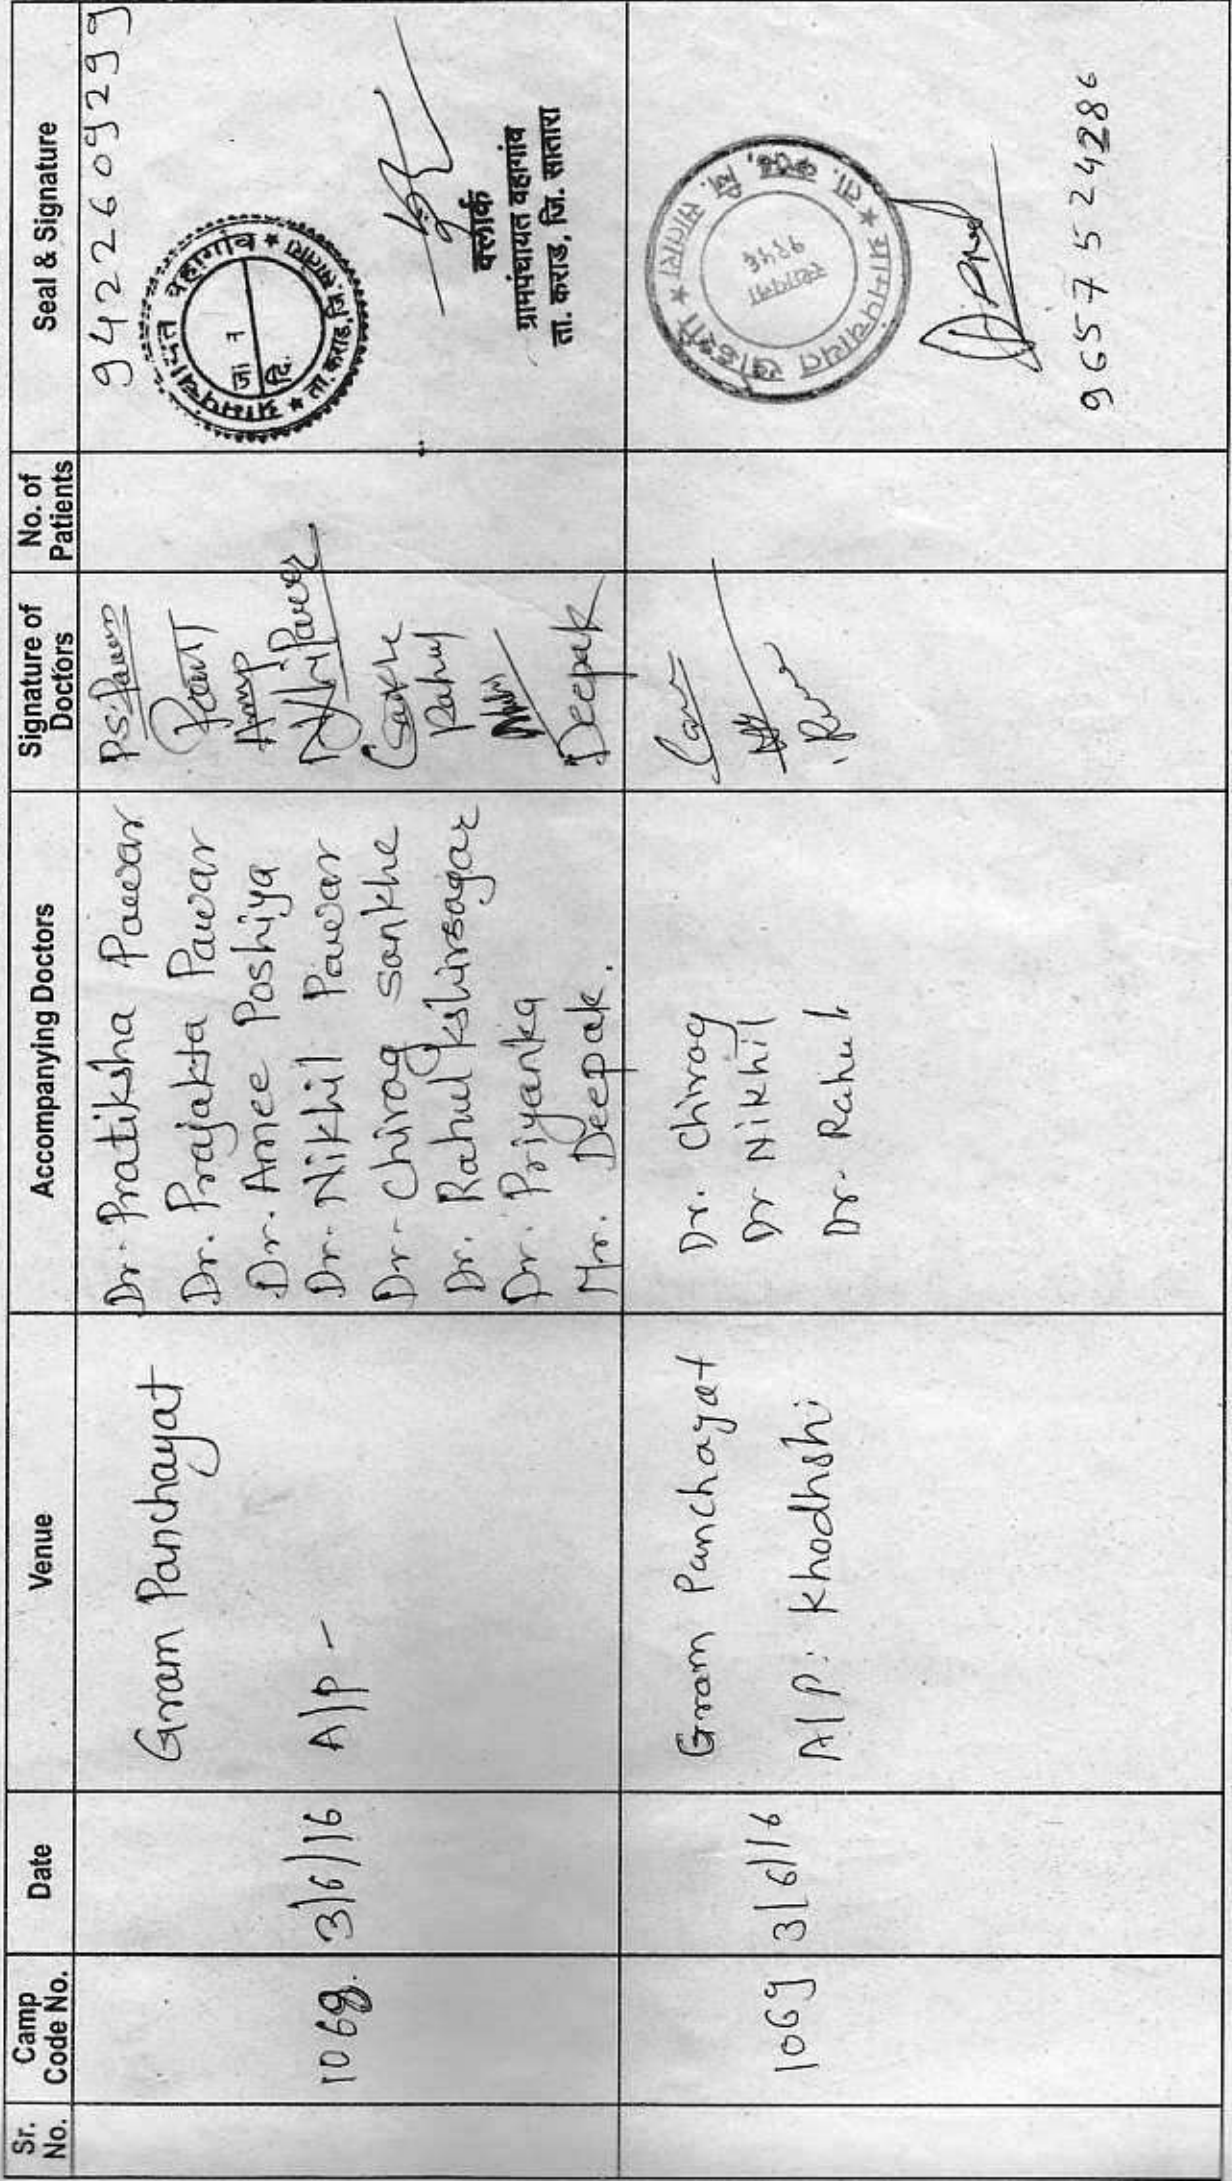 Sr. No.
Camp Code No.
Date
Venue
Accompanying Doctors
Signature of Doctors
No. of Patients
Seal & Signature
1068.
3/6/16
Gram Panchayat
A/P -
Dr. Pratiksha Pawar
Dr. Prajakta Pawar
Dr. Amee Poshiya
Dr. Nikhil Pawar
Dr. Chirag Sankhe
Dr. Rahul Kshirsagar
Dr. Priyanka
Mr. Deepak.
PS Pawar
Rahul
Deepak
9422609299
ग्रामपंचायत वहागांव
ता. कराड, जि. सातारा
जा
दि.
क्लार्क
ग्रामपंचायत वहागांव
ता. कराड, जि. सातारा
1069
3/6/16
Gram Panchayat
A/P: Khodhshi
Dr. Chirag
Dr Nikhil
Dr. Rahul
ग्रामपंचायत खोडशी
ता. कराड, जि. सातारा
स्थापना
१९५६
9657524286